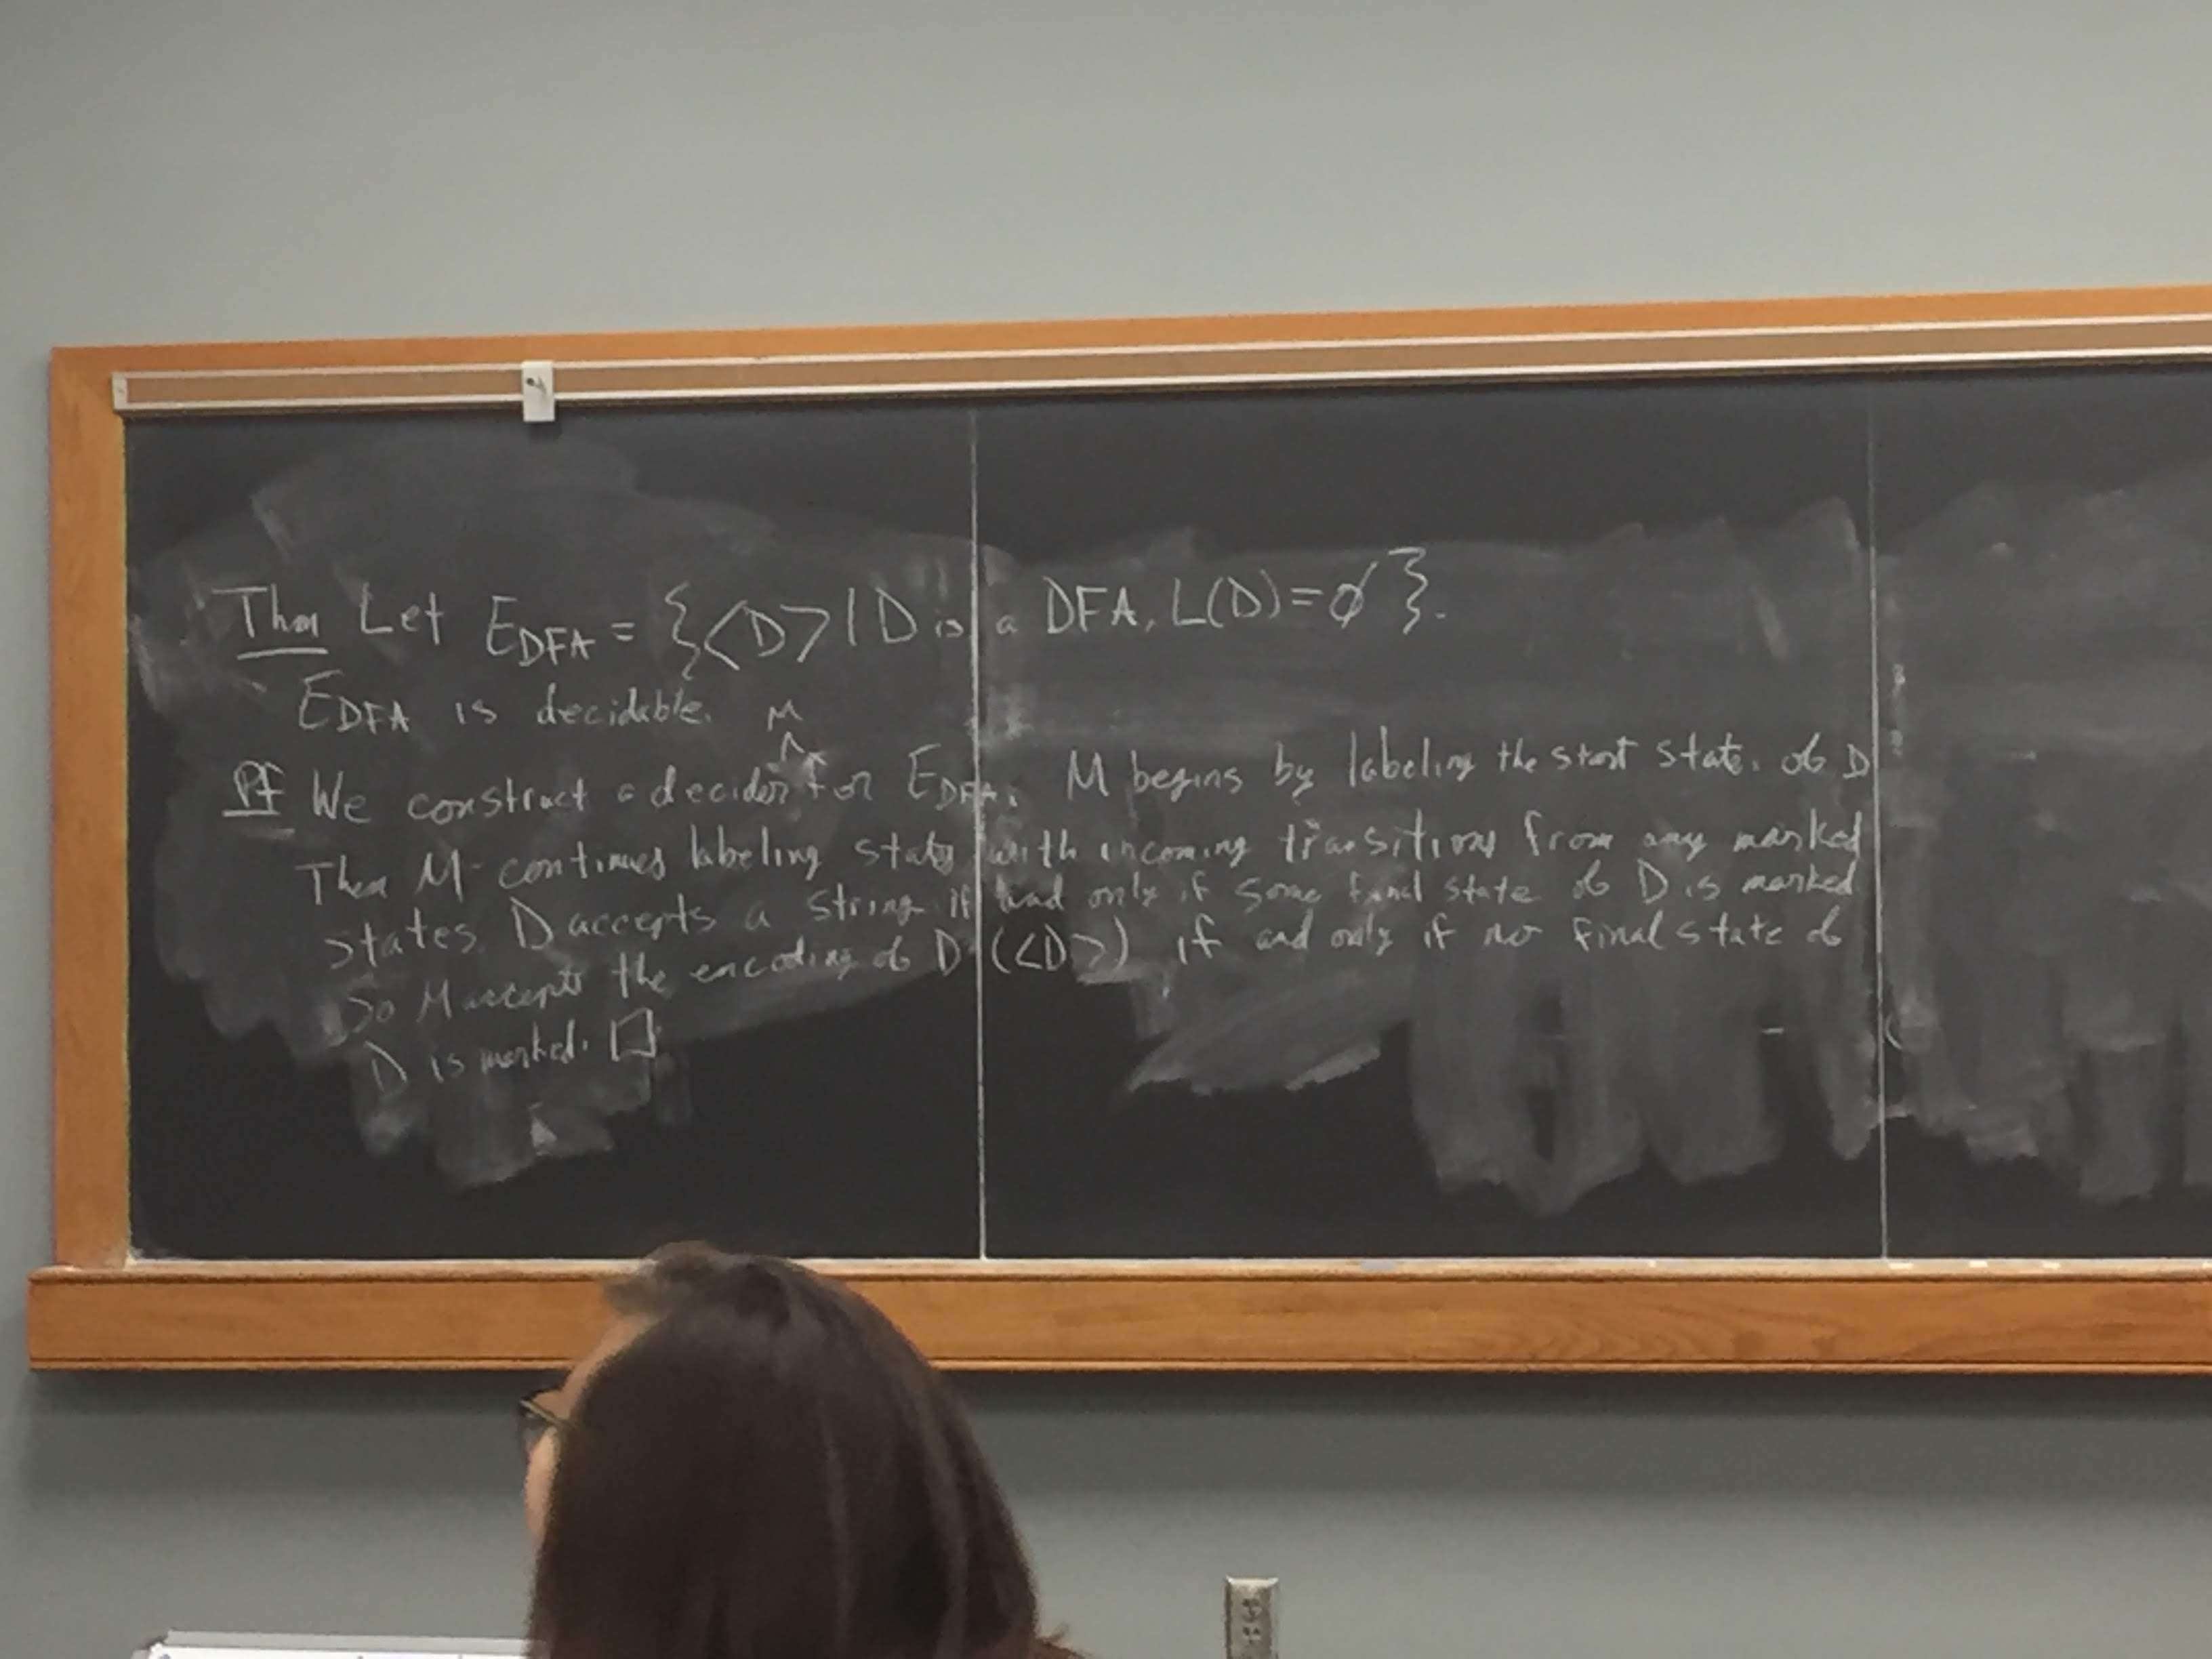 Thm Let E_DFA = {<D> | D is a DFA, L(D) = ∅}.
E_DFA is decidable.
Pf We construct a decider M for E_DFA. M begins by labeling the start state of D
Then M continues labeling states with incoming transitions from any marked
states. D accepts a string if and only if some final state of D is marked
So M accepts the encoding of D (<D>) if and only if no final state of
D is marked. □